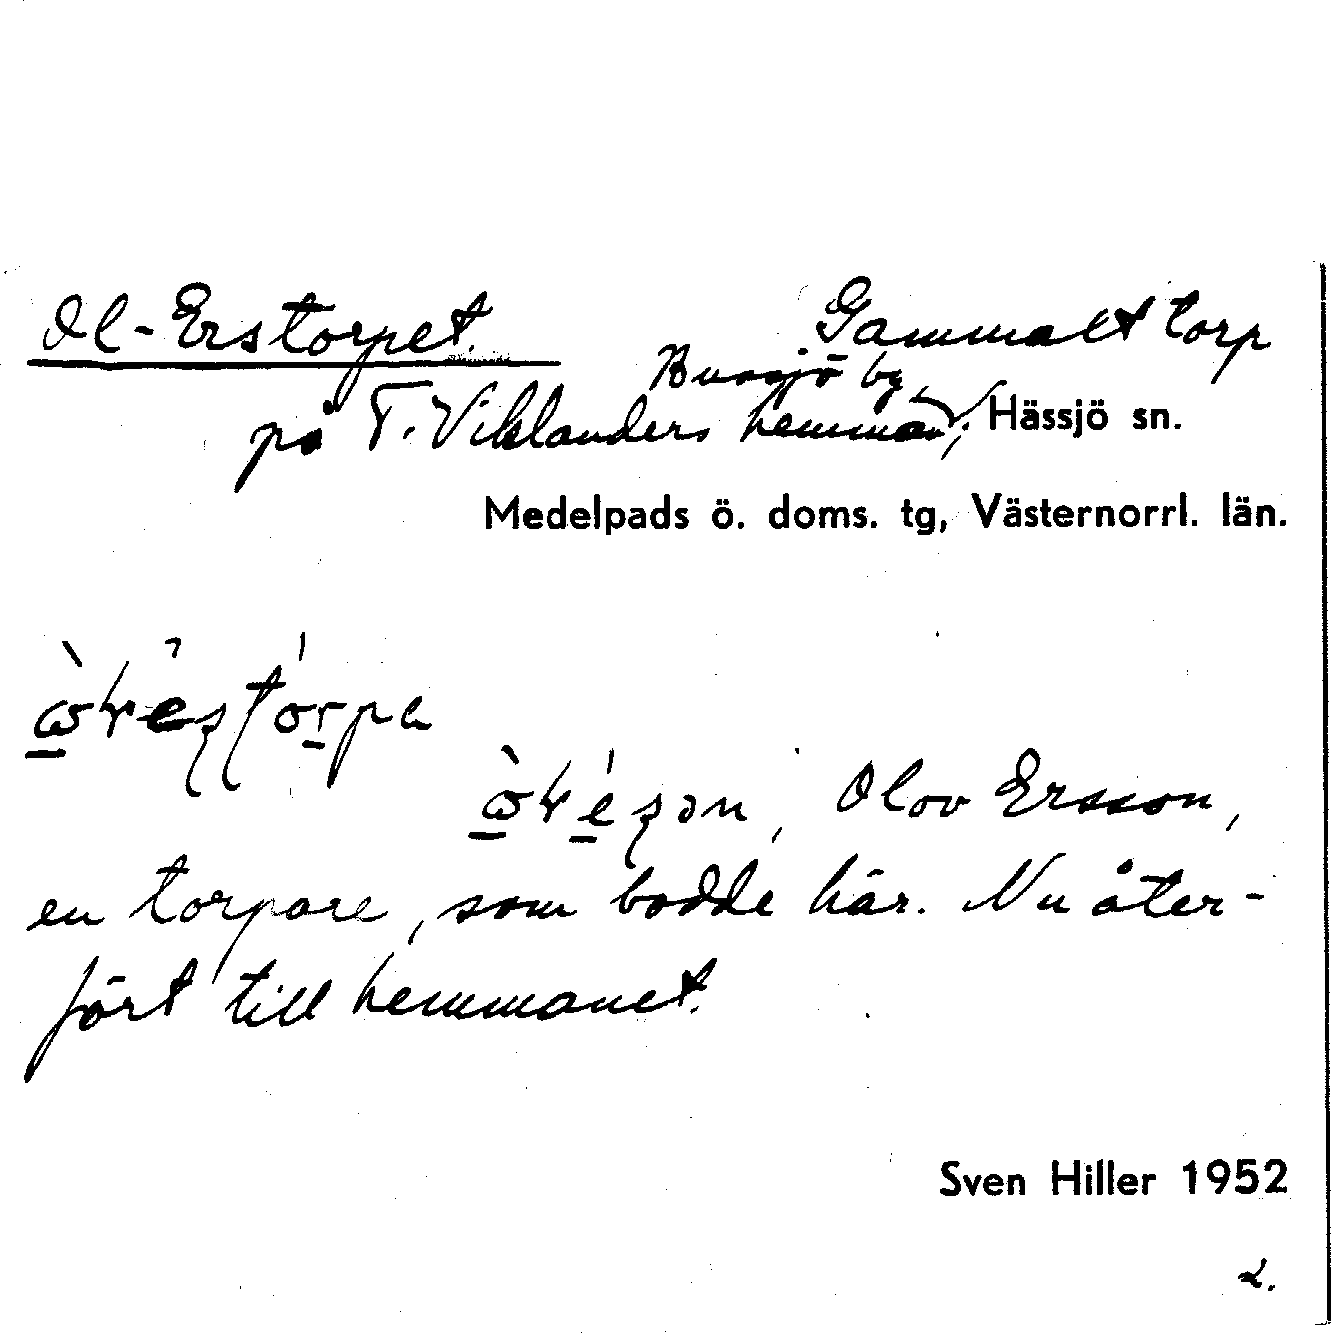 Ol-Erstorpet. Gammalt torp
Bussjö by,
på T. Viklanders hemman, Hässjö sn.
Medelpads ö. doms. tg, Västernorrl. län.
Olov Ersson,
en torpare, som bodde här. Nu åter-
fört till hemmanet.
Sven Hiller 1952
2.